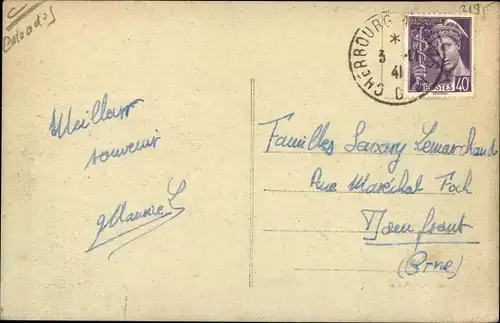 (Calvados)
219F
CHERBOURG
*
3
41
POSTES 40
Meilleur
souvenir
Familles Savary Lemarchand
Rue Maréchal Foch
Domfront
(Orne)